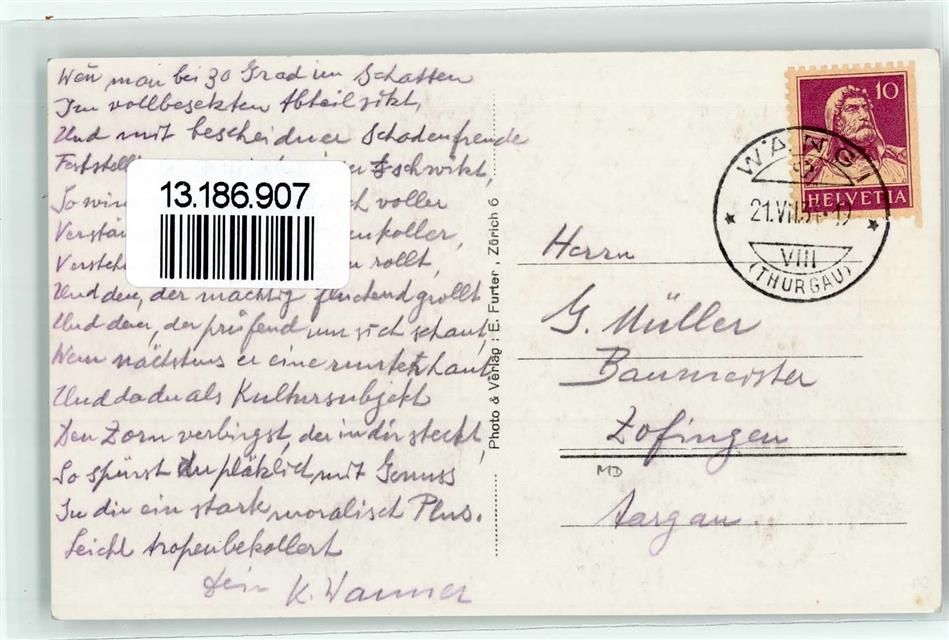 Wen̄ man bei 30 Grad im Schatten
Im vollbesetzten Abteil sitzt,
Und mit bescheidner Schadenfreude
schwitzt,
So voller
Verstä koller,
Versteh rollt,
Und den, der mächtig fluchend grollt
Und den, der prüfend um sich schaut,
Wem nächstens er eine runterhaut
Und da du als Kultursubjekt
Den Zorn verbirgst, der in dir steckt,
So spürst du plötzlich mit Genuss
In dir ein stark moralisch Plus.
Leicht tropenbekollert
Dein K. Wanner
13.186.907
Photo & Verlag : E. Furter, Zürich 6
10
HELVETIA
WÄNGI
21.VII.
VIII
(THURGAU)
Herrn
G. Müller
Baumeister
Zofingen
MD
Aargau.